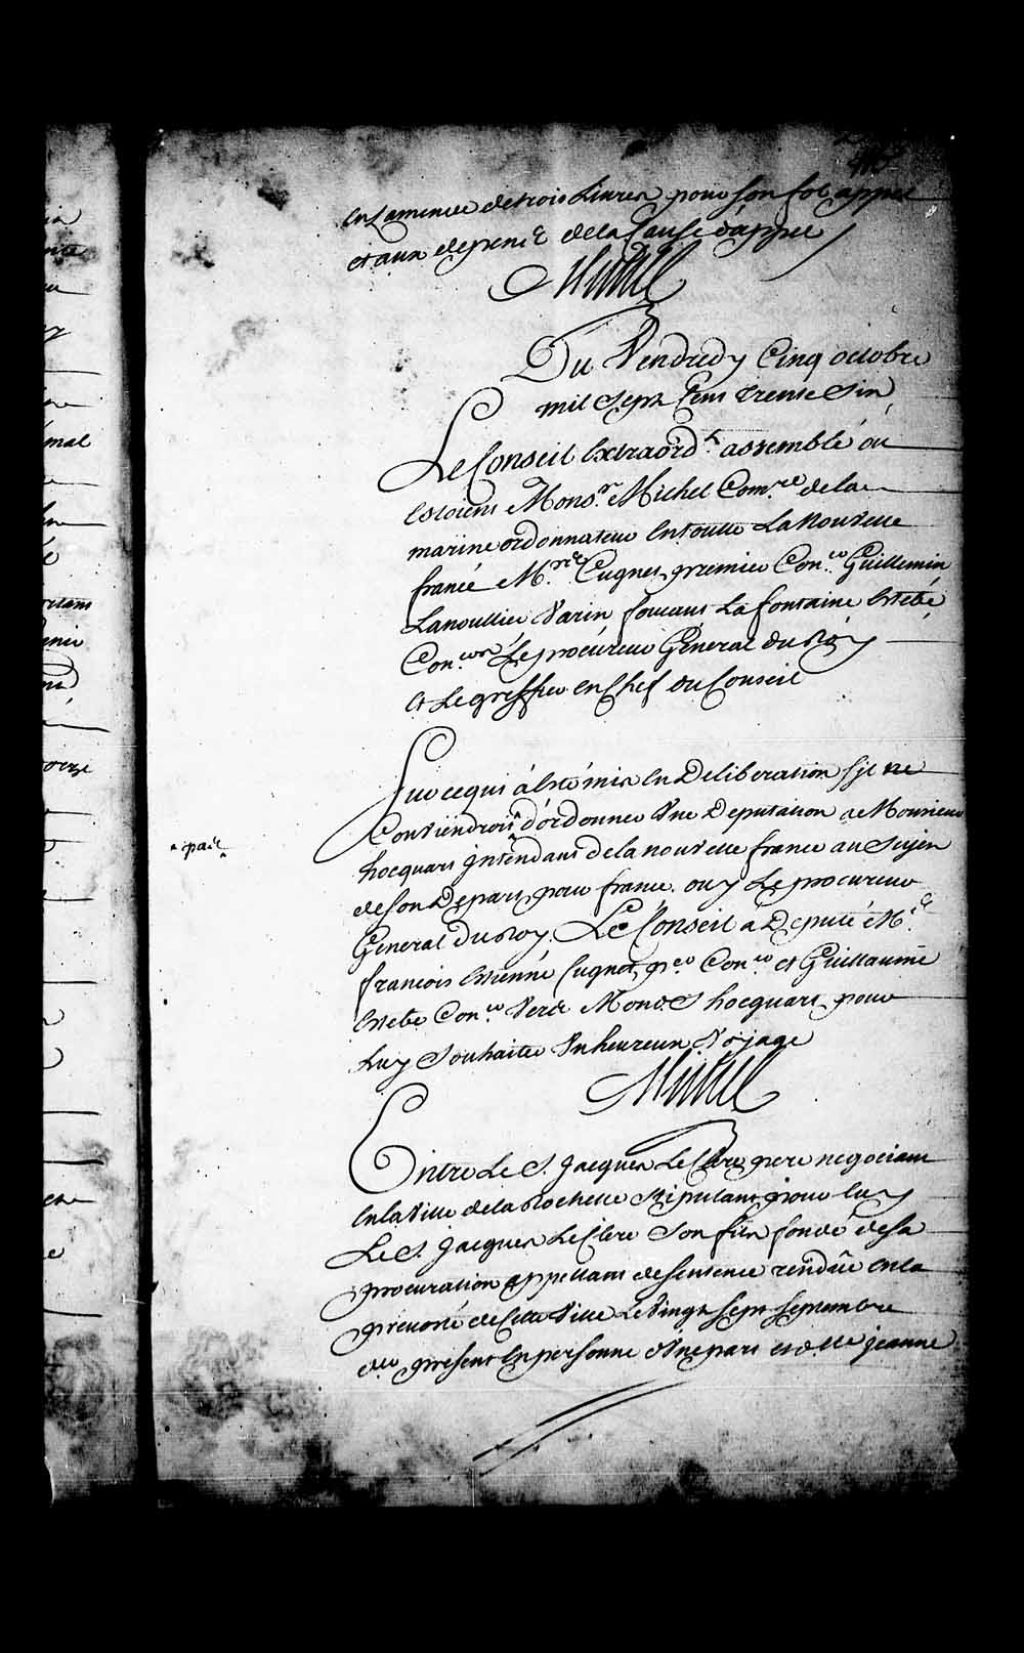 En Lamende de trois Livres pour son fol appel
et aux depens de la Cause d'appel
Michel
Du Vendredy Cinq octobre
mil Sept Cens trente Six
Le Conseil Extraord.e assemblé ou
Estoient Mons.r Michel Com.re de la
marine ordonnateur En toutte La Nouvelle
france M.rs Cugnet premier Con.er Guillemin
Lanoullier Varin foucaut La fontaine Estebe
Con.ers Le procureur General du Roy
Et Le greffier en Chef du Conseil
Sur ce qui à Esté mis En Deliberation s'jl ne
Conviendroit ^ d'ordonner Une Deputation a Monsieur
^ pas ^
hocquart jntendant de la nouvelle france au Sujet
de son Depart pour france. ouy Le procureur
General du Roy. Le Conseil à Deputé M.e
françois Estienne Cugnet p.er Con.er et Guillaume
Estebe Con.er Vers Mond. S hocquart pour
Luy Souhaiter Un heureux Voyage
Michel
Entre Le S. Jacques Le Clerc pere negociant
En la Ville de la Rochelle Stipulant pour luy
Le S. Jacques Le Clerc Son fils fondé de sa
procuration appellant de sentence rendüe en la
prevosté de Cette Ville Le Vingt Sept Septembre
d.er present En personne d'Une part et d.lle jeanne